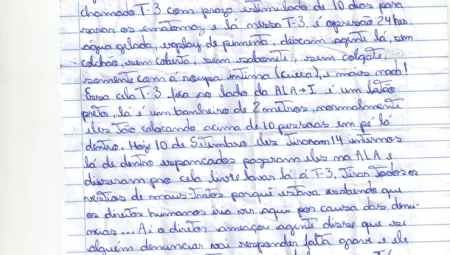 chamado T-3 com prazo estimulado de 10 dias para
sarar os ematomas, e lá nessa T-3, é opressão 24 hrs.
água gelada, esplay de pimenta, deixam agente lá, sem
colchão, sem coberta, sem sabonete, sem colgate,
somente com a roupa intima (cueca), e mais nada!
Essa cela T-3 fica no lado da ALA-I é um latão
preto, lá é um banheiro de 2 metros, normalmente
eles tão colocando acima de 10 pessoas em pé lá
dentro. Hoje 10 de Setembro eles tiraram 14 internos
lá de dentro espancados pegaram eles na ALA e
disseram pro cela livre lavar lá a T-3, tirar todos os
vestios de maus tratos porqui estava sabendo que
os direitos humanos iria vir aqui por causa das denu-
ncias... Ai o diretor ameaçou agente disse que se
alguém denunciar vai responder falta grave e ele